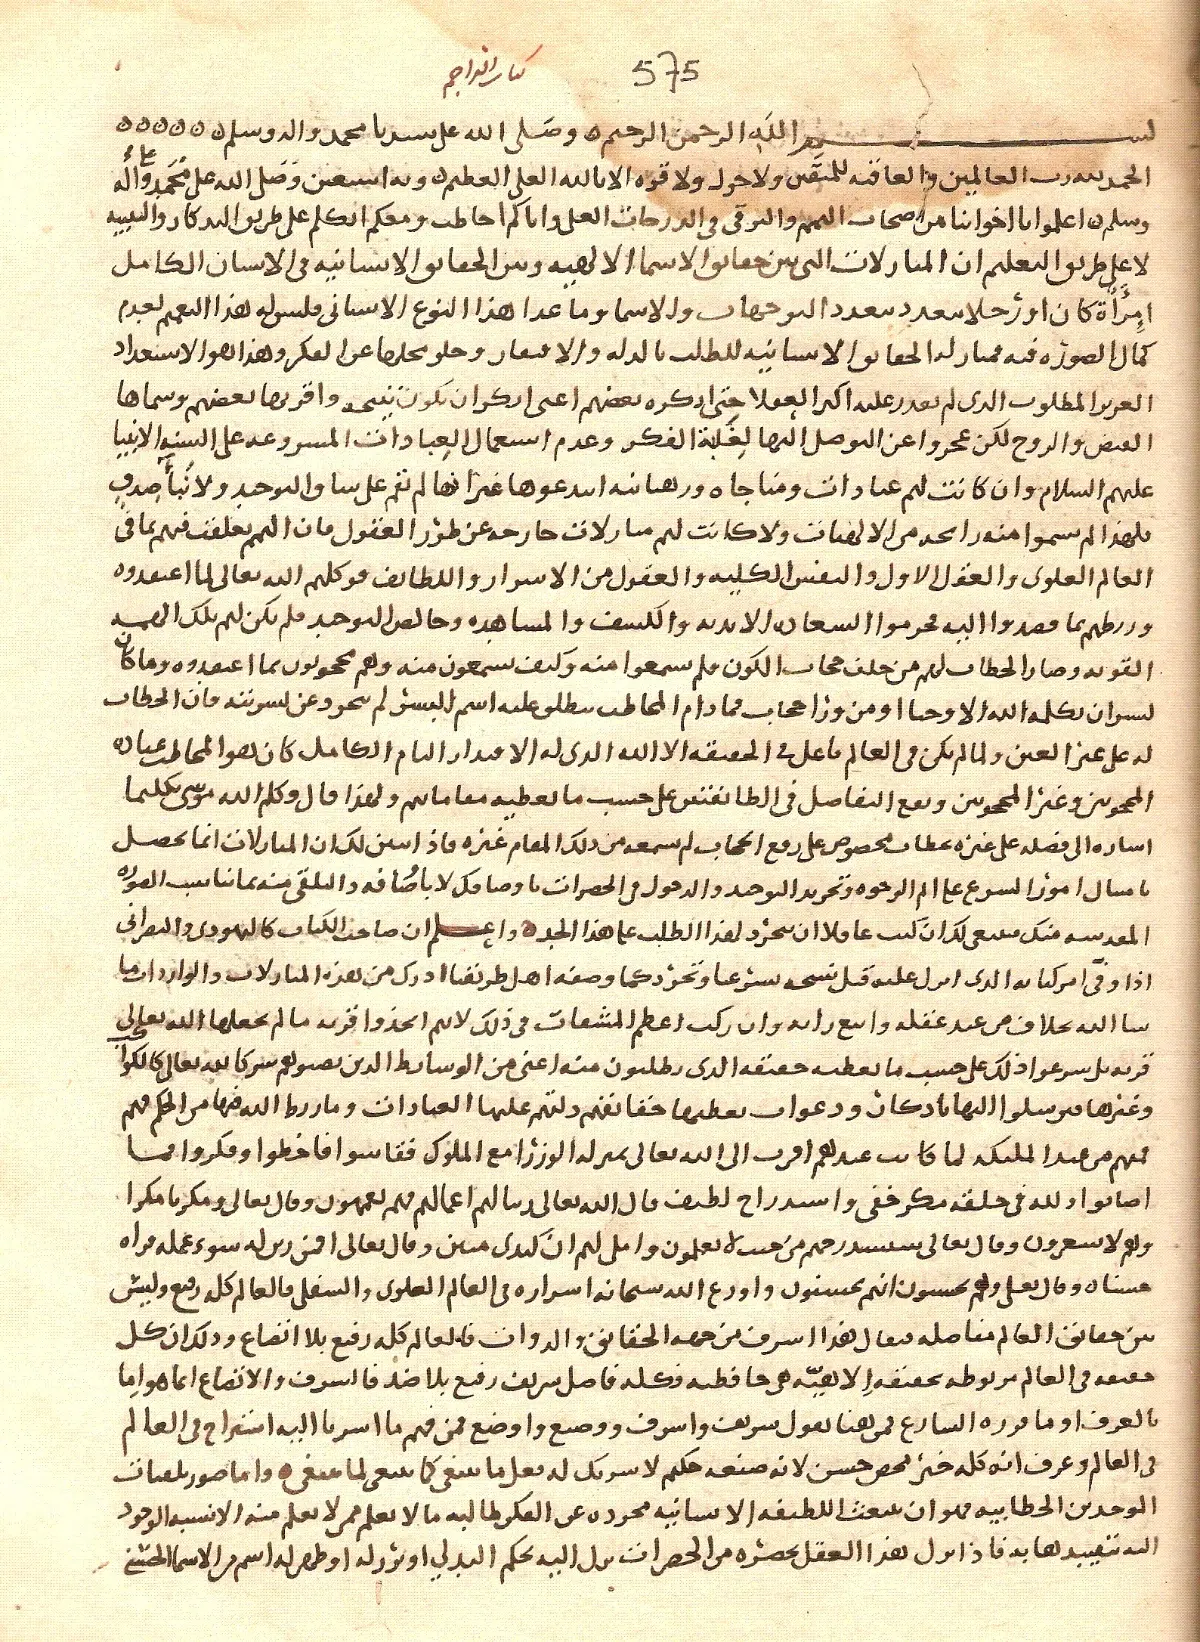 575 كتاب التراجم
بسم الله الرحمن الرحيم وصلى الله على سيدنا محمد واله وسلم
الحمد لله رب العالمين والعاقبه للمتقين ولا حول ولا قوه الا بالله العلى العظيم وبه استعين وصلى الله على محمد وعلى آله
وسلم اعلموا يا اخواننا من اصحاب الهمم والترقى فى الدرجات العلى واياكم اخاطب ومعكم اتكلم على طريق التذكار والتنبيه
لا على طريق التعليم ان المنازلات التى بين حقايق الاسما الالهيه وبين الحقايق الانسانيه فى الانسان الكامل
امرأة كان او رجلا تتعدد بتعدد التوجهات والاسما وما عدا هذا النوع الانسانى فليس له هذا التعميم لعدم
كمال الصوره فيه فمنازله الحقايق الانسانيه للطلب بالذله والافتقار وخلو محلها عن الفكر وهذا هو الاستعداد
العزيز المطلوب الذى لم يقدر عليه اكثر العقلا حتى انكره بعضهم اعنى انكر ان تكون نتيجه واقر بها بعضهم وسماها
الفيض والروح لكن عجزوا عن التوصل اليها لغلبة الفكر وعدم استعمال العبادات المشروعه على السنه الانبيا
عليهم السلام وان كانت لهم عبادات ومناجاه ورهبانيه ابتدعوها غير انها لم تقم على ساق التوحيد ولا نبأ صدق
فلهذا لم يشموا منه رايحه من الالهيات ولا كانت لهم منازلات خارجه عن طور العقول فان الهمم تعلقت منهم بما فى
العالم العلوى والعقل الاول والنفس الكليه والعقول من الاسرار واللطايف فوكلهم الله تعالى لما اعتقدوه
وربطهم بما قصدوا اليه فحرموا السعاده الابديه والكشف والمشاهده وخالص التوحيد فلم يكن لهم تلك الهمه
القويه وصار الخطاب لهم من خلف حجاب الكون فلم يسمعوا منه وكيف يسمعون منه وهم محجوبون بما اعتقدوه وما كان
لبشر ان يكلمه الله الا وحيا او من ورا حجاب فما دام المخاطب ينطلق عليه اسم البشر لم يتجرد عن بشريته فان الخطاب
له على غير العين ولما لم يكن فى العالم فاعل فى الحقيقه الا الله الذى له الاقتدار التام الكامل كان هو المخاطب عباده
المحجوبين وغير المحجوبين ويقع التفاضل فى الطايفتين على حسب ما تعطيه مقاماتهم ولهذا قال وكلم الله موسى تكليما
اشاره الى فضله على غيره بخطاب مخصوص على رفع الحجاب لم يسمعه من ذلك المقام غيره فاذا تبين لك ان المنازلات انما تحصل
بامتثال امور الشرع على اتم الوجوه وتجريد التوحيد والدخول فى الحضرات باوصافك لا باوصافه والتلقى منه بما يناسب الصوره
المقدسه منك ينبغى لك ان كنت عاقلا ان تتجرد لهذا الطلب على هذا الحد واعلم ان صاحب الكتاب كاليهودى والنصرانى
اذا وفى امر كتابه الذى انزل عليه قبل نسخه بشرعنا وتجرد كما وصفه اهل طريقتنا ادرك من هذه المنازلات والواردات ما
شا الله بخلاف من عبد عقله واتبع رايه وان ركب اعظم المشقات فى ذلك لانهم اتخذوا قربه ما لم يجعلها الله تعالى
قربه بل شرعوا ذلك على حسب ما تعطيه حقيقه الذى يطلبون منه اعنى من الوسايط الذين نصبوهم شركا لله تعالى كالكواكب
وغيرها فتوسلوا اليها باذكار ودعوات تعطيها حقايقهم دلتهم عليها العبادات وما ربط الله فيها من الحكم فهم
فمنهم من عبد الملايكه لما كانت عندهم اقرب الى الله تعالى بمنزله الوزرا مع الملوك فقاسوا فاخطوا وفكروا فما
اصابوا ولله فى خلقه مكر خفى واستدراج لطيف قال الله تعالى زينا لهم اعمالهم فهم يعمهون وقال تعالى ومكرنا مكرا
وهم لا يشعرون وقال تعالى سنستدرجهم من حيث لا يعلمون واملى لهم ان كيدى متين وقال تعالى افمن زين له سوء عمله فراه
حسنا وقال تعلى وهم يحسبون انهم يحسنون واودع الله سبحانه اسراره فى العالم العلوى والسفلى فالعالم كله رفيع وليس
بين حقايق العالم مفاضله فيقال هذا اشرف من جهه الحقايق والذوات فالعالم كله رفيع بلا اتضاع وذلك ان كل
حقيقه فى العالم مربوطه بحقيقه الالهيه هى حافظته فكله فاضل شريف رفيع بلا ضد فالشرف والاتضاع انما هو اما
بالعرف او ما قرره الشارع فمن هنا نقول شريف واشرف ووضيع واوضع فمن فهم ما اشرنا اليه استراح فى العالم
فى العالم وعرف انه كله خير محض حسن لانه صنعه حكيم لا شريك له يفعل ما ينبغى كما ينبغى لما ينبغى واما صور تلقيات
الوحدين الخطابيه فهو ان تبعث اللطيفه الانسانيه مجرده عن الفكر طالبه ما لا تعلم ممن لا تعلم منه الا نسبه الوجود
اليه تتقيد لها به فاذا نزل هذا العقل بحضره من الحضرات نزل اليه بحكم التدلي او برز له او ظهر له اسم من الاسما الحسنى